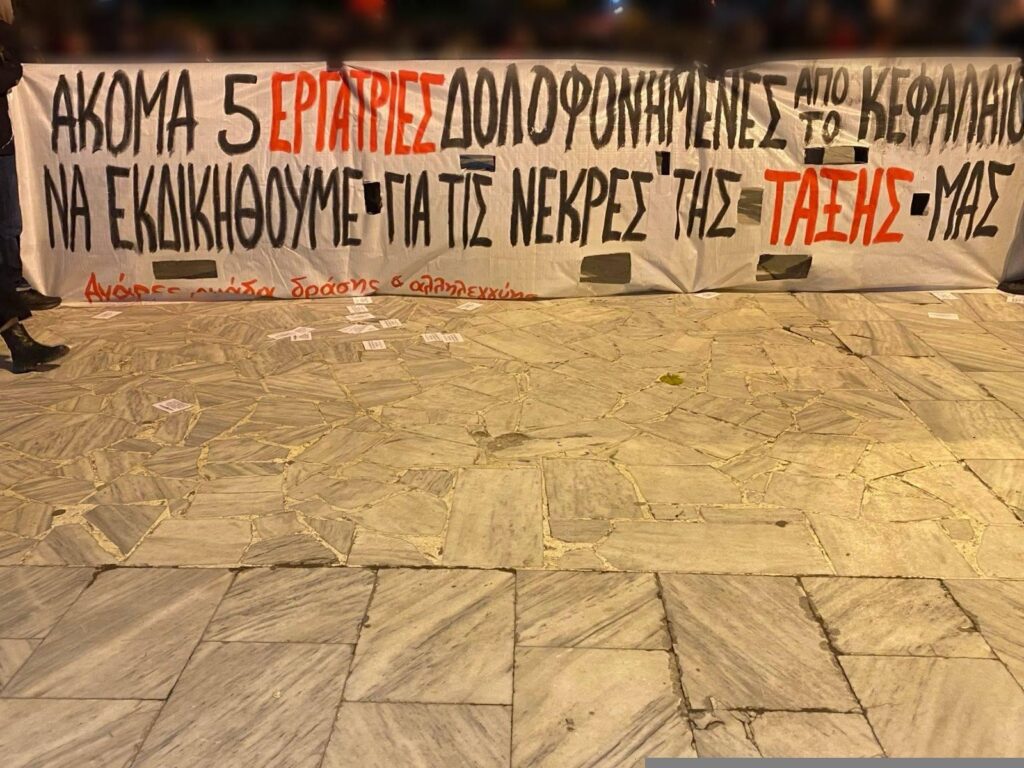 ΑΚΟΜΑ 5 ΕΡΓΑΤΡΙΕΣ ΔΟΛΟΦΟΝΗΜΕΝΕΣ ΑΠΟ ΤΟ ΚΕΦΑΛΑΙΟ
ΝΑ ΕΚΔΙΚΗΘΟΥΜΕ ΓΙΑ ΤΙΣ ΝΕΚΡΕΣ ΤΗΣ ΤΑΞΗΣ ΜΑΣ
ομάδα δράσης & αλληλεγγύης